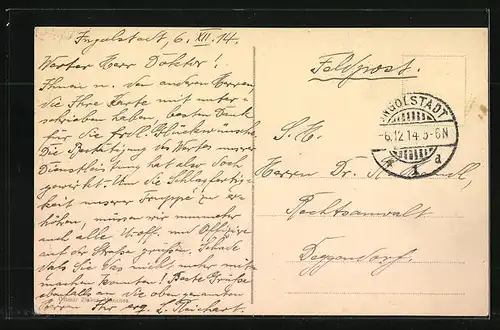 Ingolstadt, 6. XII. 14.
Werter Herr Doktor!
Ihnen u. den anderen Herren,
die Ihre Karte mit unter-
schrieben haben, besten Dank
für die frdl. Glückwünsche.
Die Bestätigung des Wertes unserer
Dienstleistung hat also doch
gewirkt. Um die Schlagfertig-
keit unserer Truppe zu er-
höhen, müssen wir nunmehr
auch alle Uroff. um Offiziere
auf der Straße grüßen. Schade
daß Sie das nicht mehr mit-
machen konnten! Beste Grüße
ebenfalls an die obengenannten
Herren Ihr erg. L. Reichart.
Feldpost.
INGOLSTADT
-6.12.14.5-6N
1 a
S. H.
Herrn Dr.
Rechtsanwalt
Deggendorf.